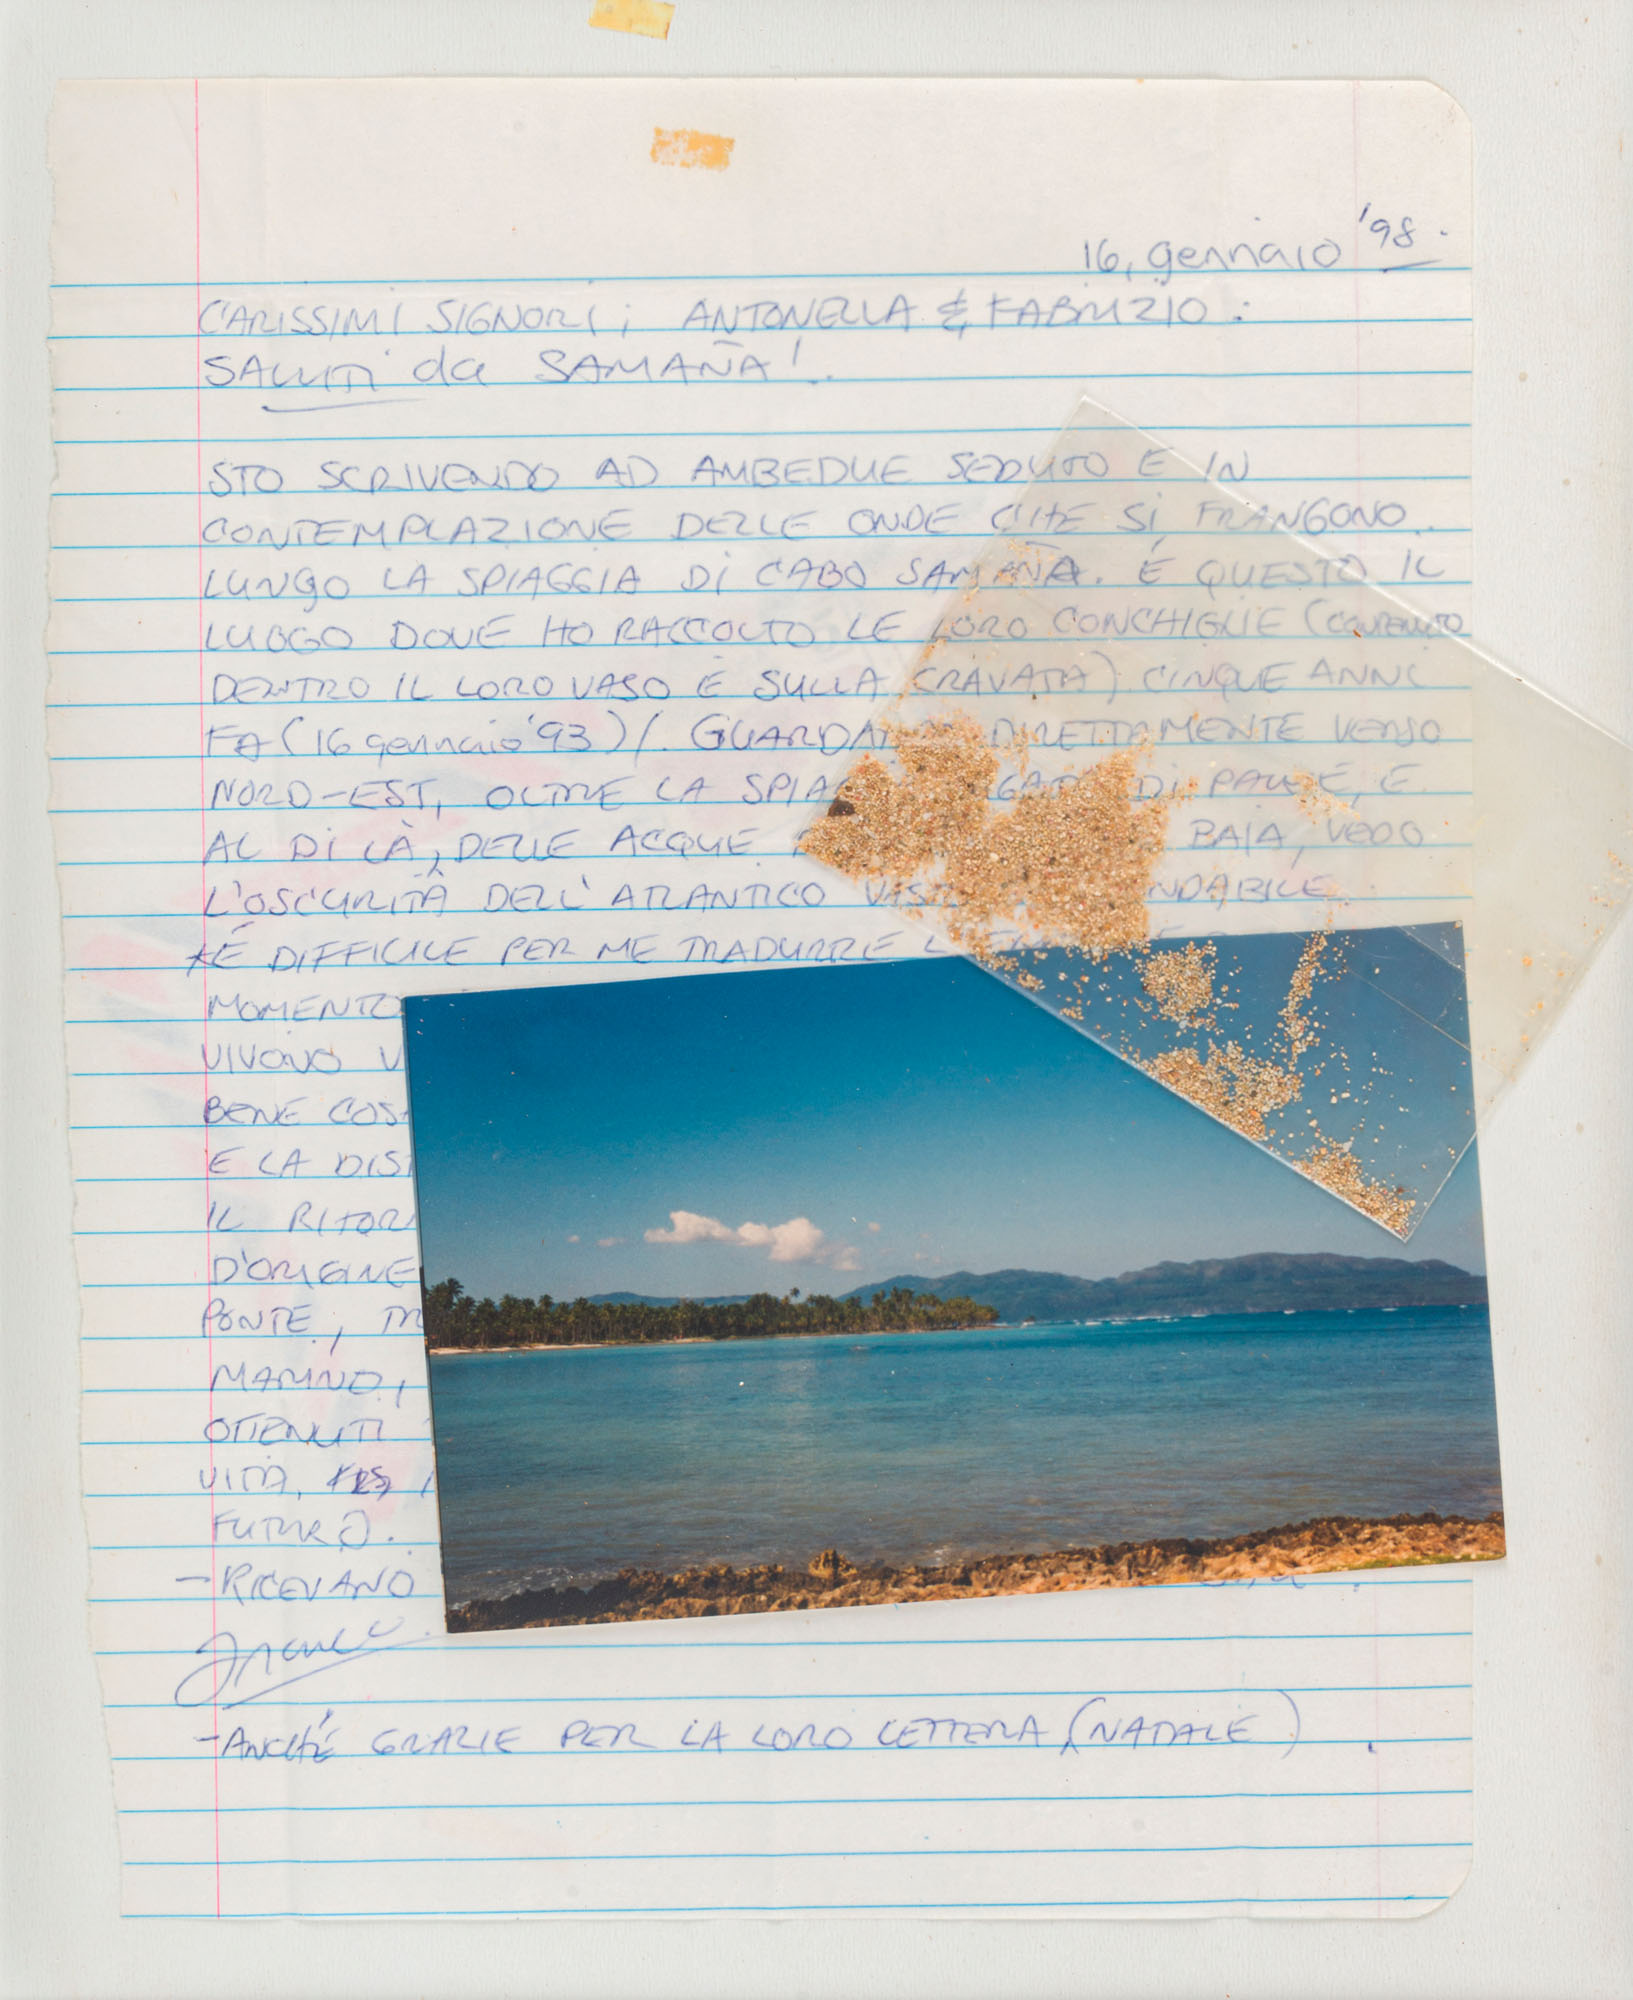 16, gennaio '98.
CARISSIMI SIGNORI; ANTONELLA & FABRIZIO:
SALUTI da SAMAÑA!
STO SCRIVENDO AD AMBEDUE SEDUTO E IN
CONTEMPLAZIONE DELLE ONDE CHE SI FRANGONO
LUNGO LA SPIAGGIA DI CABO SAMAÑA. É QUESTO IL
LUOGO DOVE HO RACCOLTO LE LORO CONCHIGLIE (CONTENUTO
DENTRO IL LORO VASO E SULLA CRAVATA) CINQUE ANNI
FA (16 gennaio '93)/. GUARDA DIRETTAMENTE VERSO
NORD-EST, OLTRE LA SPIA DI PALME, E
AL DI LÀ, DELLE ACQUE BAIA, VEDO
L'OSCURITÀ DELL'ATLANTICO VAS NDABILE
É DIFFICILE PER ME TRADURRE
MOMENTO
VIVONO V
BENE COS
E LA DIS
IL RITOR
D'ORIGINE
PONTE,
MARINO,
OTTENUTI
VITA,
FUTURO.
- RICEVANO
Franco
- ANCHÉ GRAZIE PER LA LORO LETTERA, (NATALE)